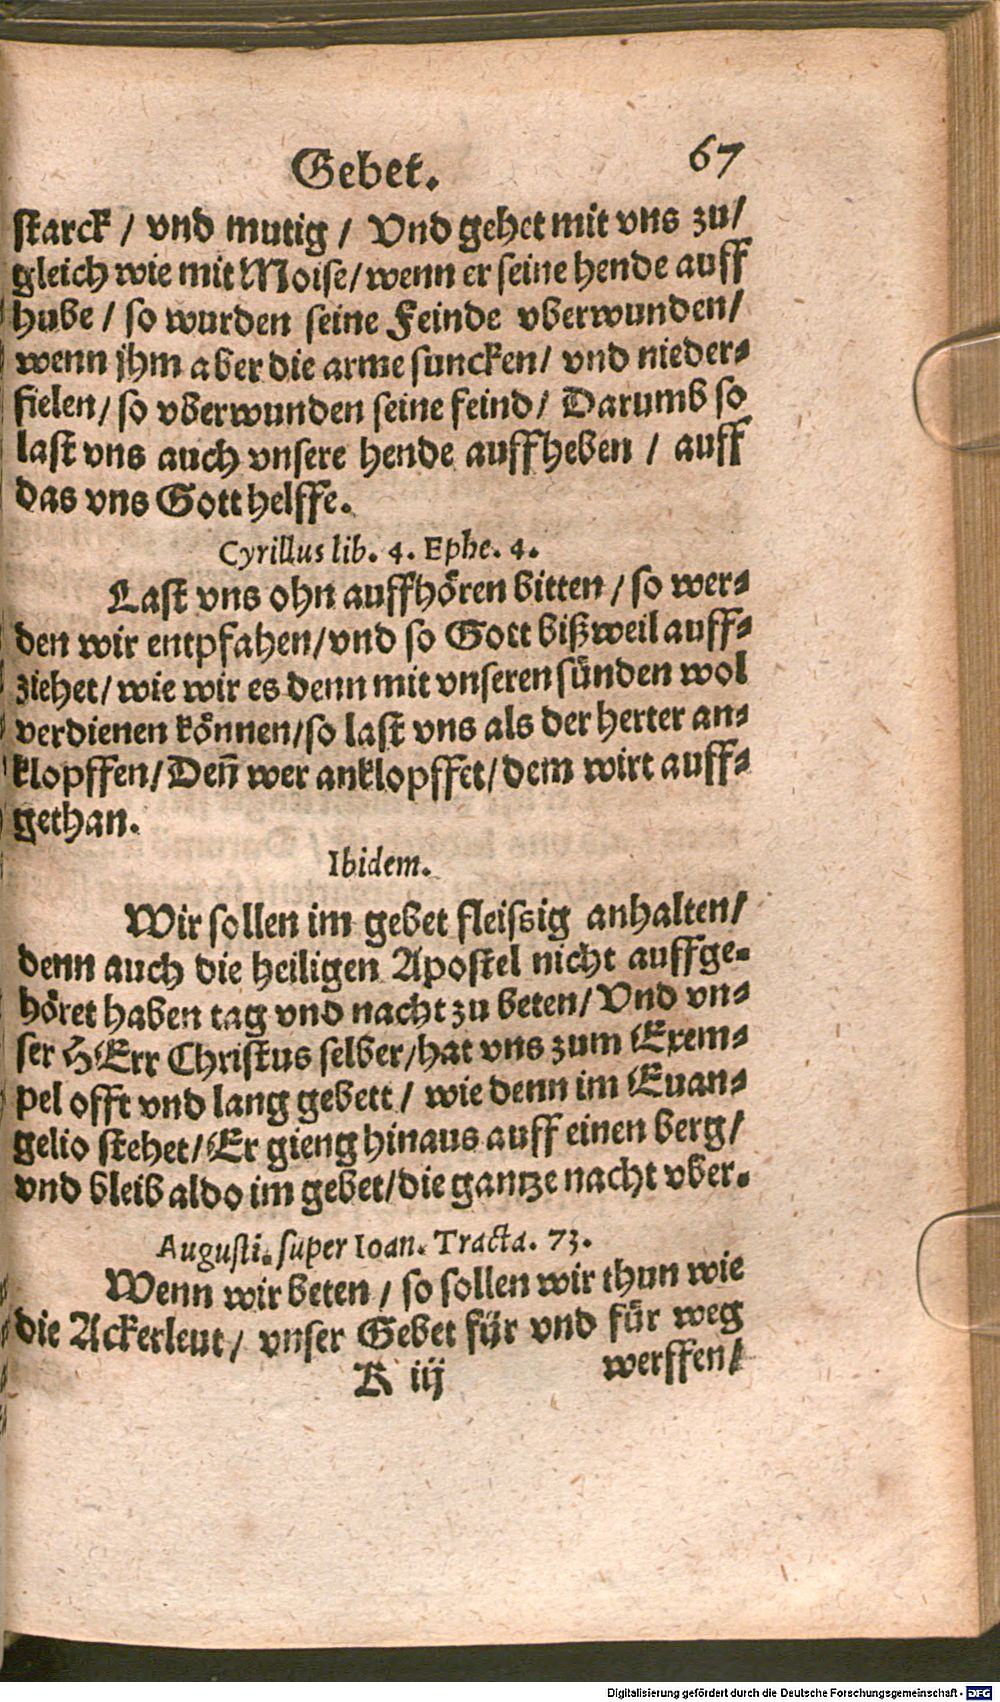 Gebet. 67
starck / vnd mutig / Vnd gehet mit vns zu/
gleich wie mit Moise/wenn er seine hende auff
hube / so wurden seine Feinde vberwunden/
wenn jhm aber die arme suncken/ vnd nieder-
fielen/ so vberwunden seine feind/ Darumb so
last vns auch vnsere hende auffheben / auff
das vns Gott helffe.
Cyrillus lib. 4. Ephe. 4.
Last vns ohn auffhören bitten / so wer-
den wir entpfahen/vnd so Gott bißweil auff-
ziehet/ wie wir es denn mit vnseren sünden wol
verdienen können/so last vns als der herter an-
klopffen/ Deñ wer anklopffet/ dem wirt auff-
gethan.
Ibidem.
Wir sollen im gebet fleissig anhalten/
denn auch die heiligen Apostel nicht auffge-
höret haben tag vnd nacht zu beten/ Vnd vn-
ser HErr Christus selber/hat vns zum Exem-
pel offt vnd lang gebett / wie denn im Euan-
gelio stehet/ Er gieng hinaus auff einen berg/
vnd bleib aldo im gebet/die gantze nacht vber.
Augusti. super Ioan. Tracta. 73.
Wenn wir beten / so sollen wir thun wie
die Ackerleut/ vnser Gebet für vnd für weg
K iij werffen/
Digitalisierung gefördert durch die Deutsche Forschungsgemeinschaft - DFG